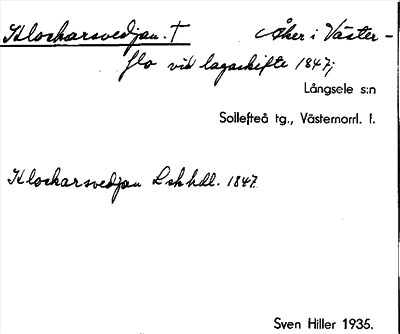 Klockarsvedjan. † Åker i Väster-
flo vid lagaskifte 1847;
Långsele s:n
Sollefteå tg., Västernorrl. l.
Klockarsvedjan Lskhdl. 1847
Sven Hiller 1935.